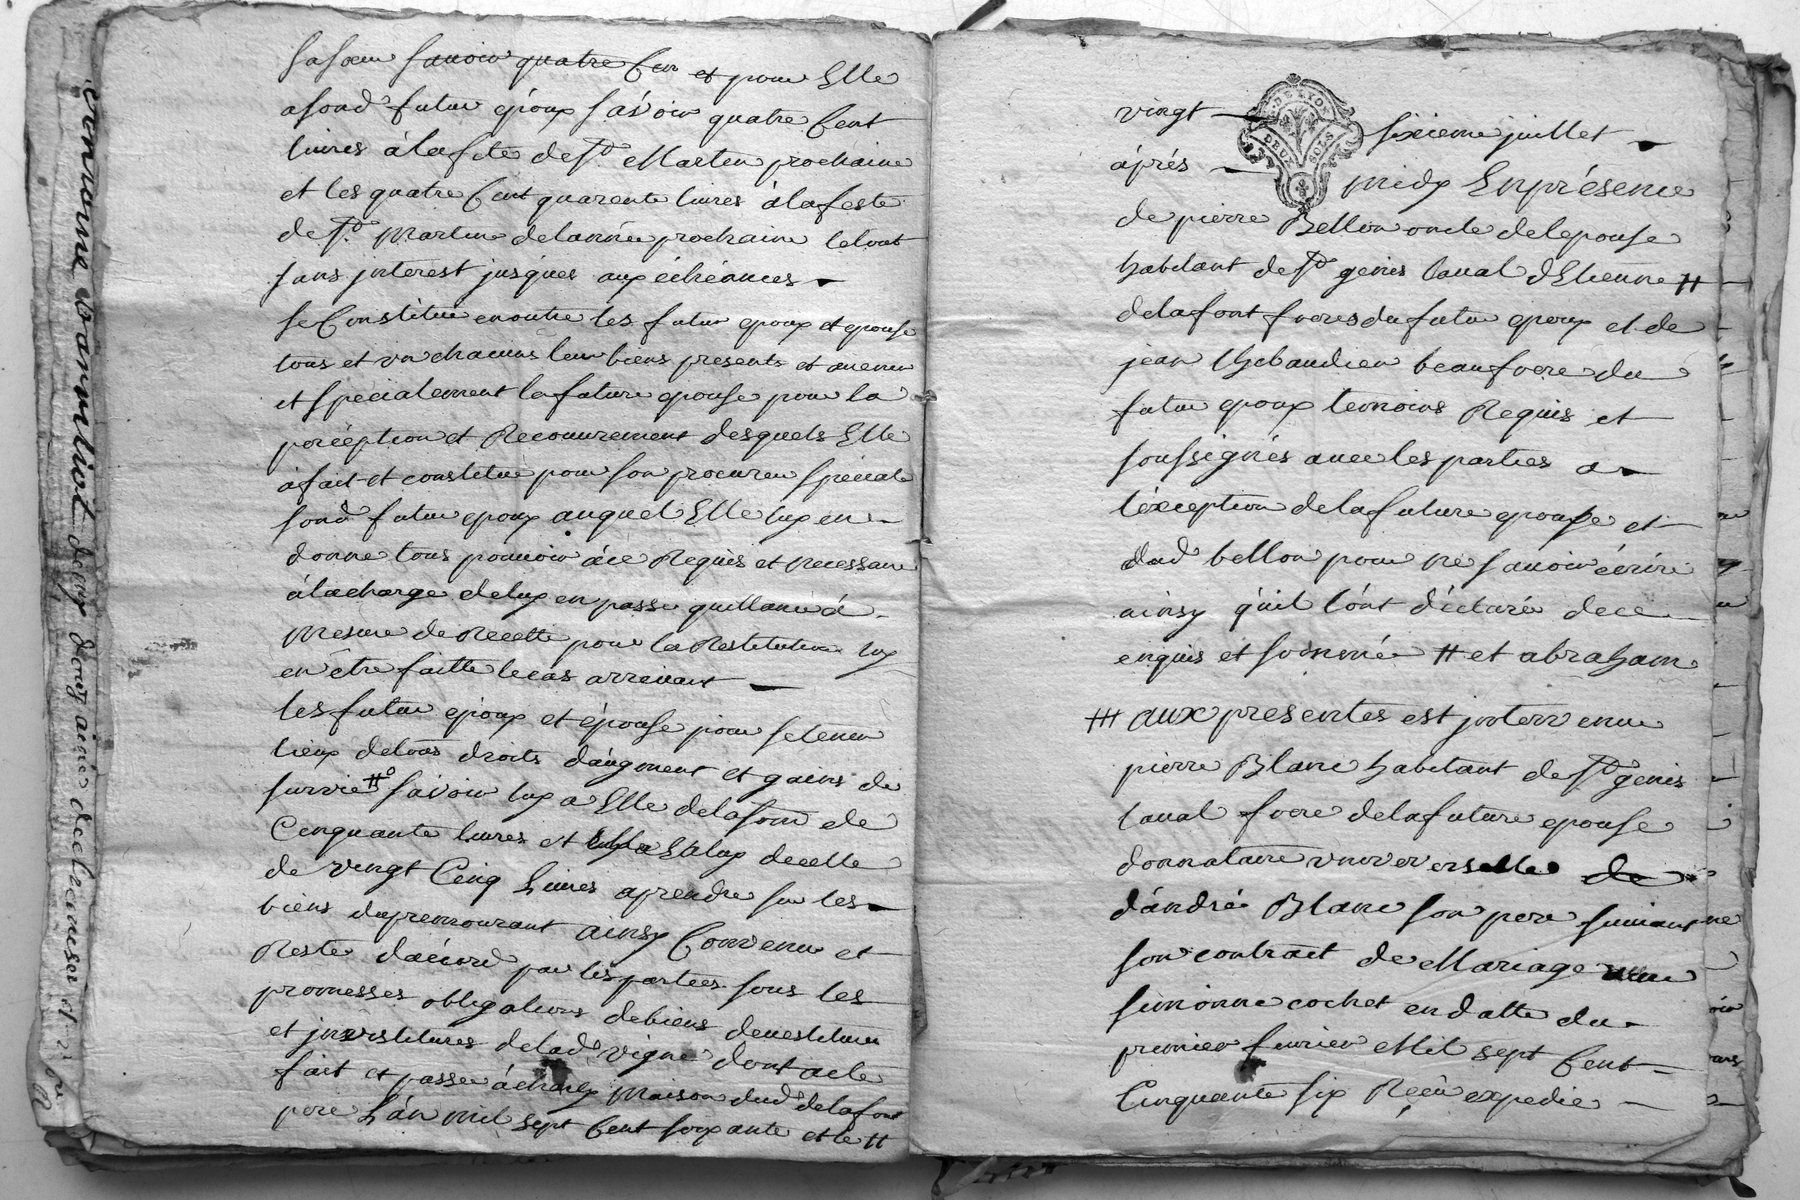 sa soeur savoir quatre cen et pour Elle
asond futur époux sávoir quatre Cent
livres à la fete de St. Martin prochaine
et les quatre Cent quarente livres à la feste
de St. Martin de lannée prochaine le tout
sans jnterest jusques aux échéances
se Constitue en outre les futur epoux et epouse
tous et un chacuns leur biens presents et avenir
et spécialement la future epouse pour la
perception et Recouvrement desquels Elle
a fait et constitue pour son procureur spécial
sond futur epoux auquel Elle luy en
donne tous pouvoir à ce Requis et necessaire
à la charge de luy en passer quittance à
mesure de Recette pour la Restitution luy
en être faitte le cas arrivant
les futur epoux et épouse pour se tenir
lieux de tous droits daugment et gains de
survie # savoir luy a Elle de la some de
Cinquante livres et Elle a luy de celle
de vingt Cinq Livres a prendre sur les
biens du premourant ainsy Convenu et
Reste dacord par les parties sous les
promesses obligations de biens devestiture
et jnvestitures de lad vigne dont acte
fait et passé à charly maison dud delafont
pere L'an mil sept Cent soixante et le #
vingt sixieme juillet
DE LYON
DEUX SOLS
áprés midy En présence
de pierre Bellon oncle de lepouse
habitant de St genis laval d'Etienne #
delafont freres du futur epoux et de
jean thebaudier beaufrere du
futur epoux temoins Requis et
soussignés avec les parties a
léxception de la future epouse et
dud bellon pour ne savoir écrire
ainsy quil lónt déclaré de ce
enquis et sommé # et abraham
# aux presentes est jnterv enu
pierre Blanc habitant de St genis
laval frere de la future epouse
donnataire univer erselle de
dándré Blanc son pere suivant
son contrait de Mariage avec
simonne cochet en datte du
premier fevrier Mil sept Cent
Cinquante six Reçu expedie